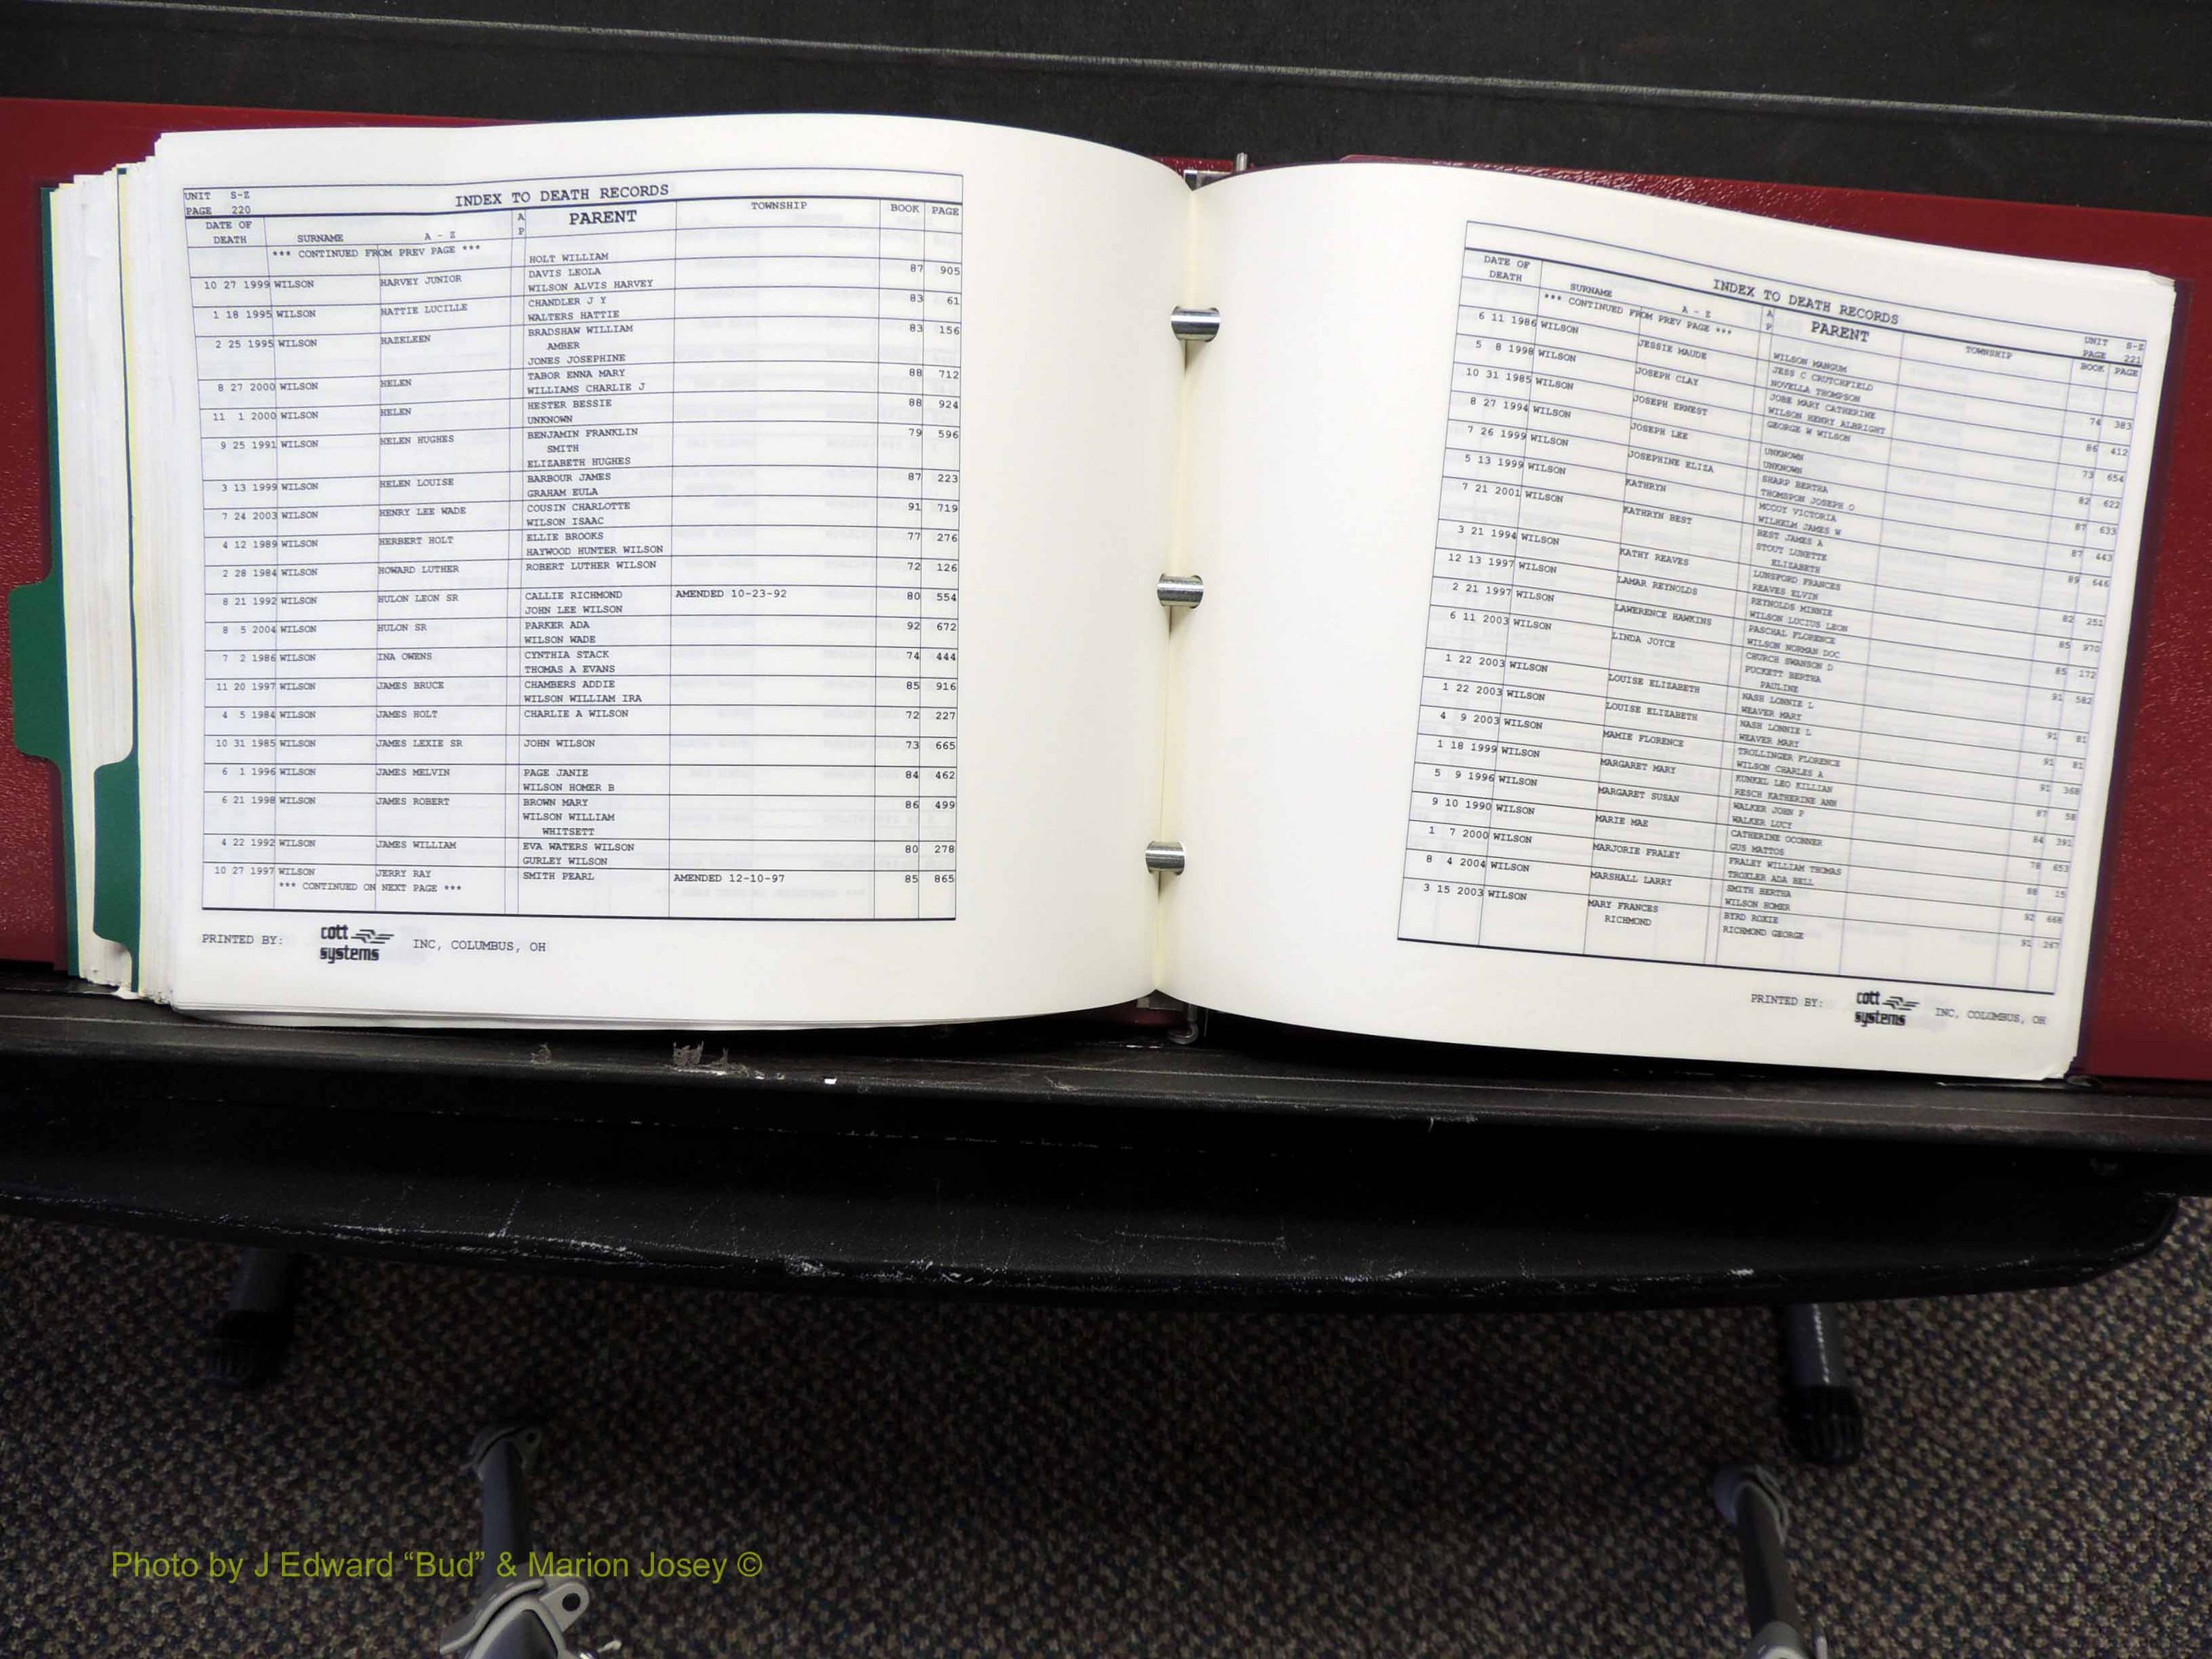 UNIT S-Z
PAGE 220
INDEX TO DEATH RECORDS
DATE OF DEATH SURNAME A - Z A P PARENT TOWNSHIP BOOK PAGE
*** CONTINUED FROM PREV PAGE *** HOLT WILLIAM
10 27 1999 WILSON HARVEY JUNIOR DAVIS LEOLA 87 905
WILSON ALVIS HARVEY
1 18 1995 WILSON HATTIE LUCILLE CHANDLER J Y 83 61
WALTERS HATTIE
2 25 1995 WILSON HAZELEEN BRADSHAW WILLIAM 83 156
AMBER
JONES JOSEPHINE
8 27 2000 WILSON HELEN TABOR ENNA MARY 88 712
WILLIAMS CHARLIE J
11 1 2000 WILSON HELEN HESTER BESSIE 88 924
UNKNOWN
9 25 1991 WILSON HELEN HUGHES BENJAMIN FRANKLIN 79 596
SMITH
ELIZABETH HUGHES
3 13 1999 WILSON HELEN LOUISE BARBOUR JAMES 87 223
GRAHAM EULA
7 24 2003 WILSON HENRY LEE WADE COUSIN CHARLOTTE 91 719
WILSON ISAAC
4 12 1989 WILSON HERBERT HOLT ELLIE BROOKS 77 276
HAYWOOD HUNTER WILSON
2 28 1984 WILSON HOWARD LUTHER ROBERT LUTHER WILSON 72 126
8 21 1992 WILSON HULON LEON SR CALLIE RICHMOND AMENDED 10-23-92 80 554
JOHN LEE WILSON
8 5 2004 WILSON HULON SR PARKER ADA 92 672
WILSON WADE
7 2 1986 WILSON INA OWENS CYNTHIA STACK 74 444
THOMAS A EVANS
11 20 1997 WILSON JAMES BRUCE CHAMBERS ADDIE 85 916
WILSON WILLIAM IRA
4 5 1984 WILSON JAMES HOLT CHARLIE A WILSON 72 227
10 31 1985 WILSON JAMES LEXIE SR JOHN WILSON 73 665
6 1 1996 WILSON JAMES MELVIN PAGE JANIE 84 462
WILSON HOMER B
6 21 1998 WILSON JAMES ROBERT BROWN MARY 86 499
WILSON WILLIAM
WHITSETT
4 22 1992 WILSON JAMES WILLIAM EVA WATERS WILSON 80 278
GURLEY WILSON
10 27 1997 WILSON JERRY RAY SMITH PEARL AMENDED 12-10-97 85 865
*** CONTINUED ON NEXT PAGE ***
PRINTED BY: cott systems INC, COLUMBUS, OH
INDEX TO DEATH RECORDS
UNIT S-Z
PAGE 221
DATE OF DEATH SURNAME A - Z A P PARENT TOWNSHIP BOOK PAGE
*** CONTINUED FROM PREV PAGE *** WILSON MANGUM
6 11 1986 WILSON JESSIE MAUDE JESS C CRUTCHFIELD 74 383
NOVELLA THOMPSON
5 8 1998 WILSON JOSEPH CLAY JOBE MARY CATHERINE 86 412
WILSON HENRY ALBRIGHT
10 31 1985 WILSON JOSEPH ERNEST GEORGE W WILSON 73 654
8 27 1994 WILSON JOSEPH LEE UNKNOWN 82 622
UNKNOWN
7 26 1999 WILSON JOSEPHINE ELIZA SHARP BERTHA 87 633
THOMSPON JOSEPH O
5 13 1999 WILSON KATHRYN MCCOY VICTORIA 87 443
WILHELM JAMES W
7 21 2001 WILSON KATHRYN BEST BEST JAMES A 89 646
STOUT LUNETTE
ELIZABETH
3 21 1994 WILSON KATHY REAVES LUNSFORD FRANCES 82 251
REAVES ELVIN
12 13 1997 WILSON LAMAR REYNOLDS REYNOLDS MINNIE 85 970
WILSON LUCIUS LEON
2 21 1997 WILSON LAWERENCE HAWKINS PASCHAL FLORENCE 85 172
WILSON NORMAN DOC
6 11 2003 WILSON LINDA JOYCE CHURCH SWANSON D 91 582
PUCKETT BERTHA
PAULINE
1 22 2003 WILSON LOUISE ELIZABETH NASH LONNIE L 91 81
WEAVER MARY
1 22 2003 WILSON LOUISE ELIZABETH NASH LONNIE L 91 81
WEAVER MARY
4 9 2003 WILSON MAMIE FLORENCE TROLLINGER FLORENCE 91 368
WILSON CHARLES A
1 18 1999 WILSON MARGARET MARY KUNKEL LEO KILLIAN 87 58
RESCH KATHERINE ANN
5 9 1996 WILSON MARGARET SUSAN WALKER JOHN P 84 391
WALKER LUCY
9 10 1990 WILSON MARIE MAE CATHERINE OCONNER 78 653
GUS MATTOS
1 7 2000 WILSON MARJORIE FRALEY FRALEY WILLIAM THOMAS 88 15
TROXLER ADA BELL
8 4 2004 WILSON MARSHALL LARRY SMITH BERTHA 92 668
WILSON HOMER
3 15 2003 WILSON MARY FRANCES BYRD ROXIE 91 267
RICHMOND RICHMOND GEORGE
PRINTED BY: cott systems INC, COLUMBUS, OH
Photo by J Edward “Bud” & Marion Josey ©